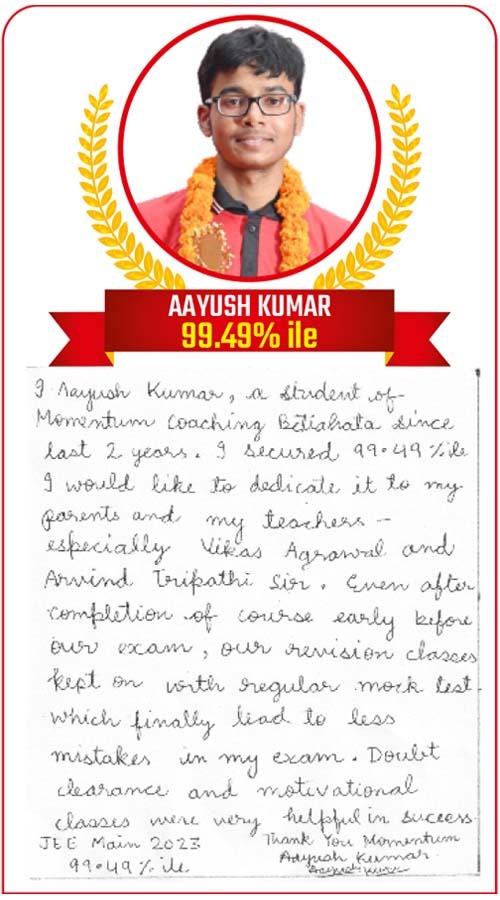 AAYUSH KUMAR
99.49% ile
I Aayush Kumar, a student of
Momentum coaching Betiahata since
last 2 years. I secured 99.49 %ile
I would like to dedicate it to my
parents and my teachers -
especially Vikas Agrawal and
Arvind Tripathi Sir. Even after
completion of course early before
our exam, our revision classes
kept on with regular mock test.
which finally lead to less
mistakes in my exam. Doubt
clearance and motivational
classes were very helpful in success.
JEE Main 2023 Thank You Momentum
99.49 % ile Aayush Kumar.
Aayush Kumar